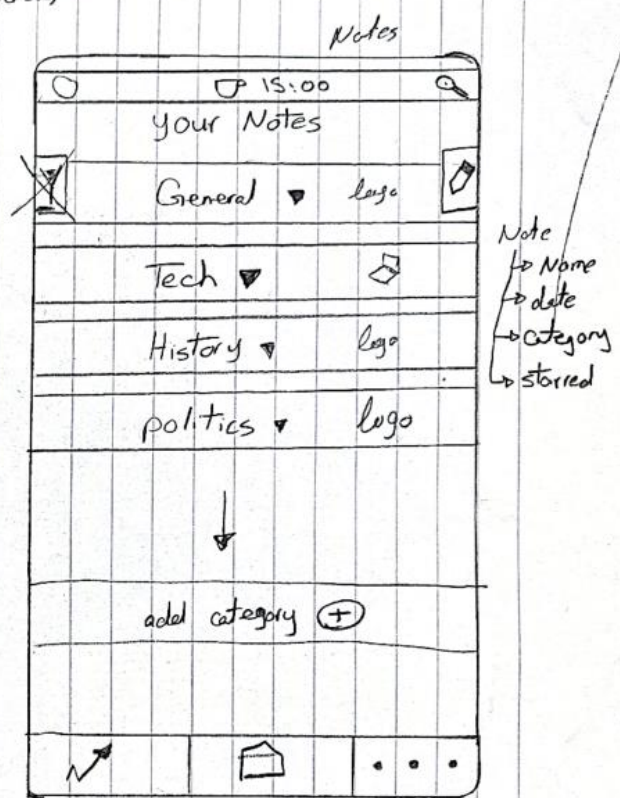 Notes
15:00
your Notes
General logo
Tech
History logo
politics logo
add category +
Note
Name
date
category
starred